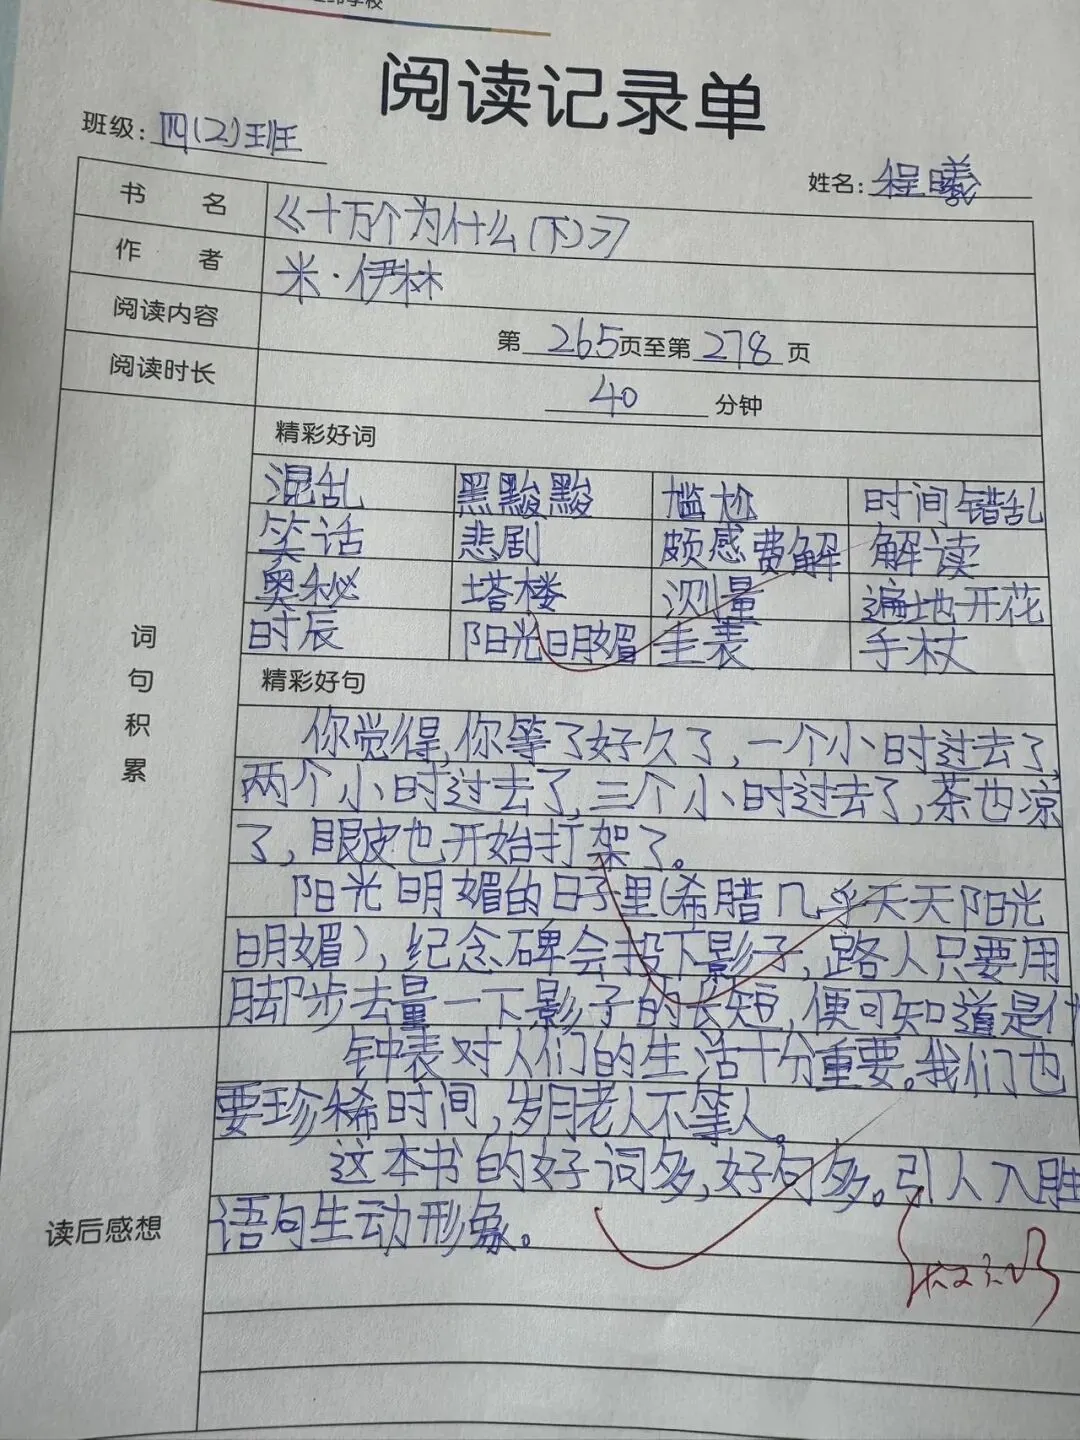 学校
阅读记录单
班级：四(2)班
姓名：程曦
书 名 《十万个为什么(下)》
作 者 米·伊林
阅读内容 第265页至第278页
阅读时长 40分钟
词句积累
精彩好词
混乱 黑黢黢 尴尬 时间错乱
笑话 悲剧 颇感费解 解读
奥秘 塔楼 测量 遍地开花
时辰 阳光明媚 圭表 手杖
精彩好句
你觉得,你等了好久了,一个小时过去了,
两个小时过去了,三个小时过去了,茶也凉
了,眼皮也开始打架了。
阳光明媚的日子里(希腊几乎天天阳光
明媚),纪念碑会投下影子,路人只要用
脚步去量一下影子的长短,便可知道是什
读后感想
钟表对人们的生活十分重要。我们也
要珍稀时间,岁月老人不等人。
这本书的好词多,好句多。引人入胜
语句生动形象。